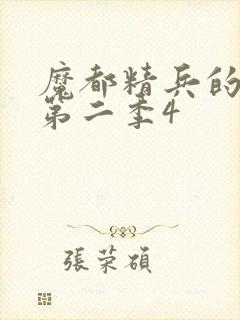 魔都精兵的
第二季4
張荣碩